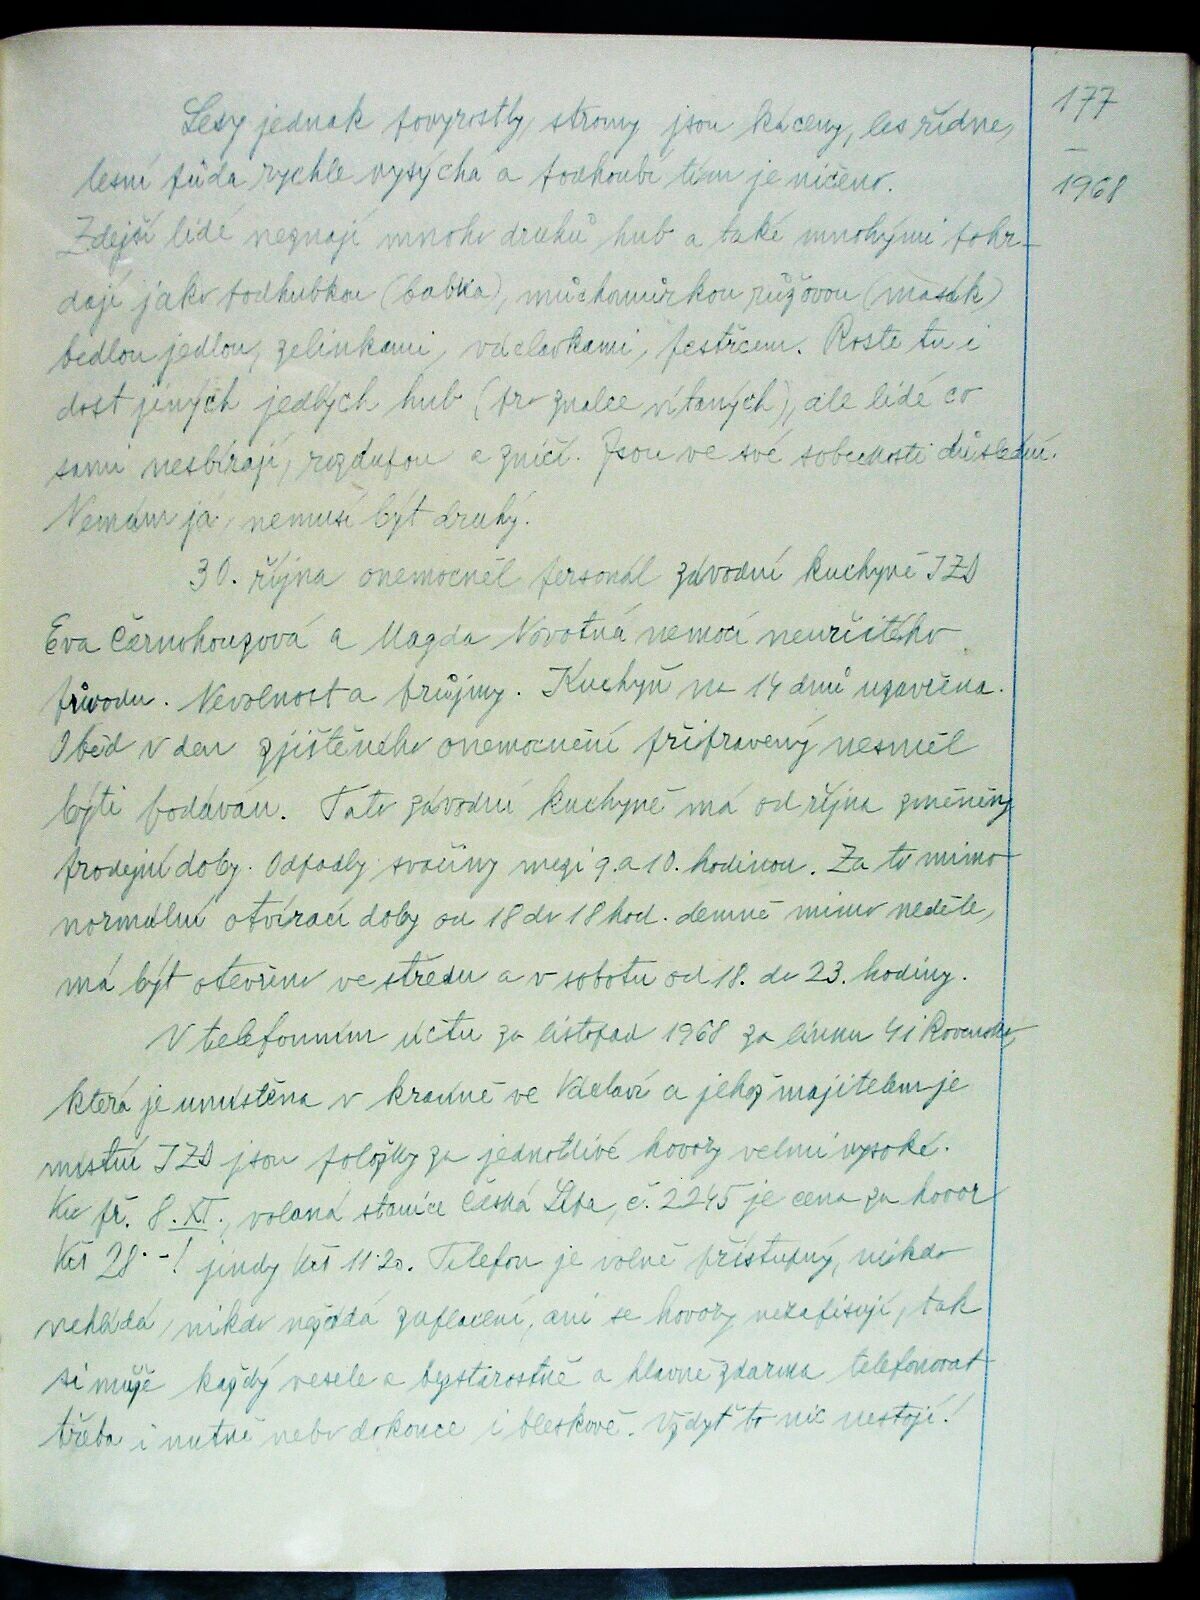 177
–
1968
Lesy jednak povyrostly, stromy jsou káceny, les řídne,
lesní půda rychle vysýchá a podhoubí tím je ničeno.
Zdejší lidé neznají mnoho druhů hub a také mnohými pohr-
dají jako podhubkou (babka), muchomůrkou růžovou (masák)
bedlou jedlou, zelinkami, václavkami, pestřcem. Roste tu i
dost jiných jedlých hub (pro znalce vítaných), ale lidé co
sami nesbírají, rozdupou a zničí. Jsou ve své sobeckosti důslední.
Nemám já, nemusí být druhý.
30. října onemocněl personál závodní kuchyně JZD
Eva Černohouzová a Magda Novotná nemocí neurčitého
původu. Nevolnost a průjmy. Kuchyň na 14 dnů uzavřena.
Oběd v den zjištěného onemocnění připravený nesměl
býti podáván. Tato závodní kuchyně má od října změněny
prodejní doby. Odpadly svačiny mezi 9. a 10. hodinou. Za to mimo
normální otvírací doby od 18 do 18 hod. denně mimo neděle,
má být otevřeno ve středu a v sobotu od 18. do 23. hodiny.
V telefonním účtu za listopad 1968 za linku 41 Rovensko,
která je umístěna v kravíně ve Václaví a jehož majitelem je
místní JZD jsou položky za jednotlivé hovory velmi vysoké.
Ku př. 8. XI., volaná stanice Česká Lípa, č. 2245 je cena za hovor
Kčs 28·-! jindy Kčs 11·20. Telefon je volně přístupný, nikdo
nehlídá, nikdo nežádá zaplacení, ani se hovory nezapisují, tak
si může každý vesele a bezstarostně a hlavně zdarma telefonovat
třeba i nutně nebo dokonce i bleskově. Vždyť to nic nestojí!